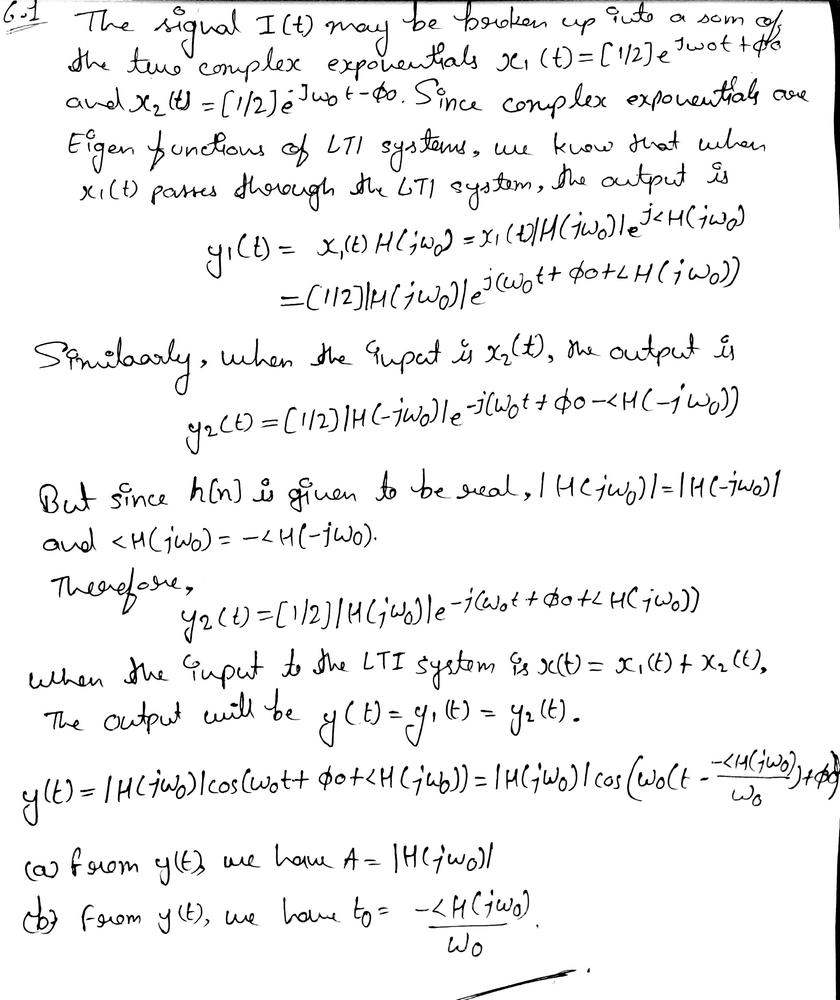 6.1 The signal I(t) may be broken up into a som of
the two complex exponentials x₁(t) = [1/2] e^jω₀t+ϕ₀
and x₂(t) = [1/2] e^-jω₀t-ϕ₀. Since complex exponentials are
Eigen functions of LTI systems, we know that when
x₁(t) passes through the LTI system, the output is
y₁(t) = x₁(t) H(jω₀) = x₁(t)|H(jω₀)|e^j<H(jω₀)
= [1/2]|H(jω₀)|e^j(ω₀t + ϕ₀+∠H(jω₀))
Similarly, when the input is x₂(t), the output is
y₂(t) = [1/2]|H(-jω₀)|e^-j(ω₀t + ϕ₀ -<H(-jω₀))
But since h[n] is given to be real, |H(jω₀)| = |H(-jω₀)|
and <H(jω₀) = -<H(-jω₀).
Therefore,
y₂(t) = [1/2]|H(jω₀)|e^-j(ω₀t + ϕ₀+∠H(jω₀))
when the input to the LTI system is x(t) = x₁(t) + x₂(t),
The output will be y(t) = y₁(t) = y₂(t).
y(t) = |H(jω₀)|cos(ω₀t+ ϕ₀+<H(jω₀)) = |H(jω₀)|cos(ω₀(t - -<H(jω₀)/ω₀)+ϕ₀)
(a) from y(t), we have A = |H(jω₀)|
(b) from y(t), we have t₀ = -<H(jω₀)/ω₀.